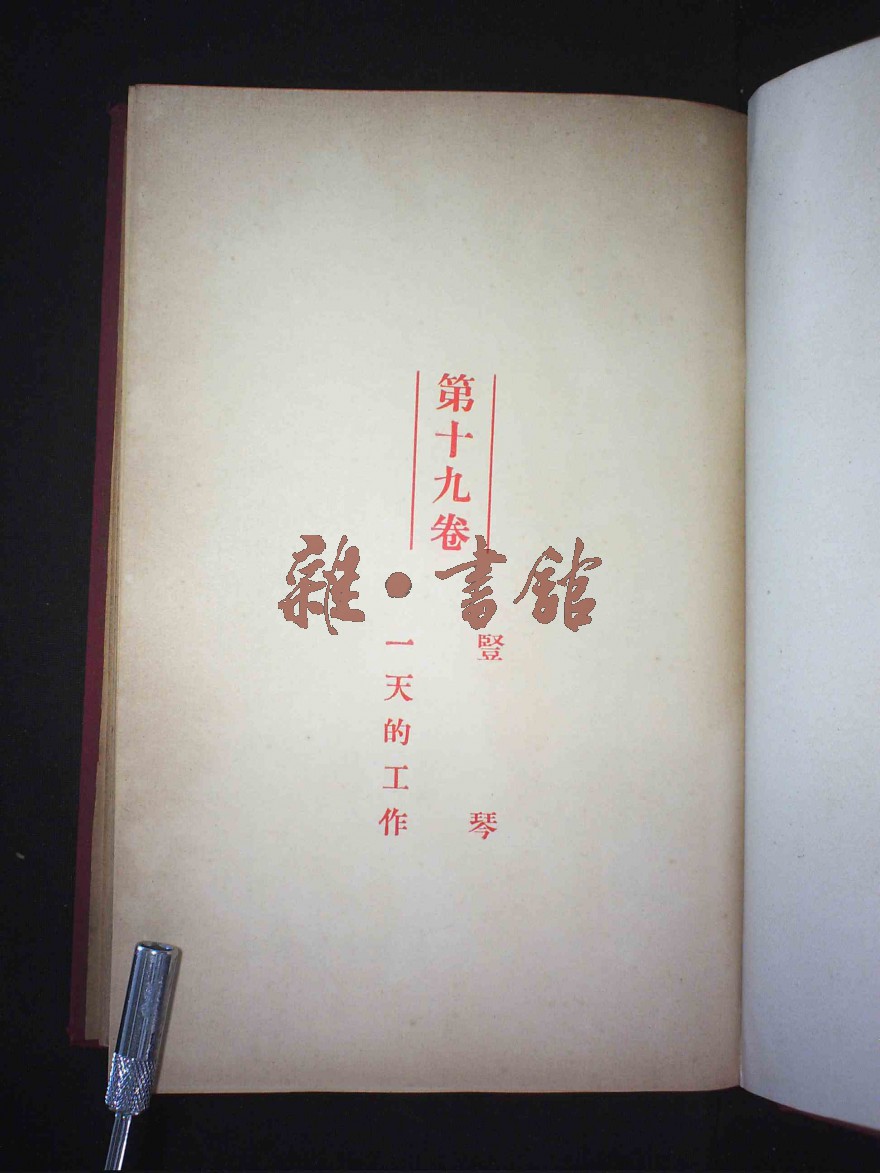 第十九卷
豎琴
一天的工作
雜·書館